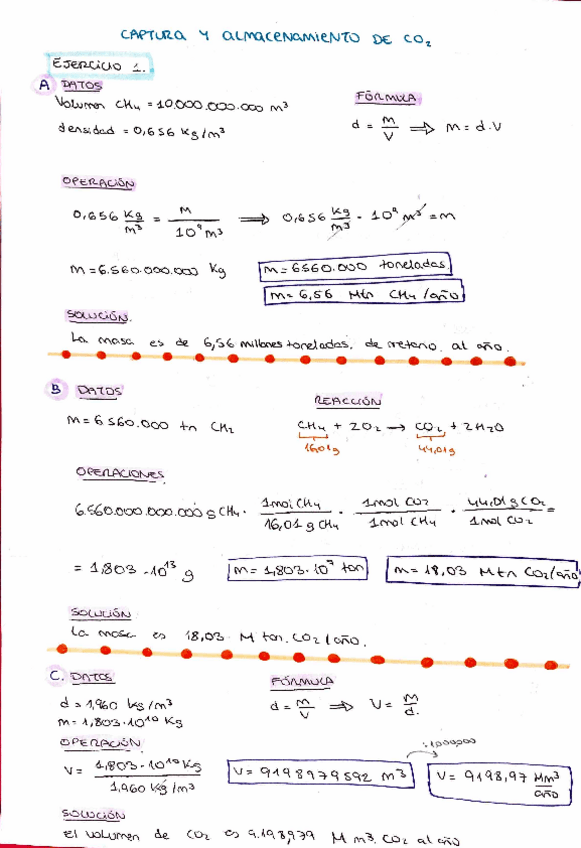 CAPTURA Y ALMACENAMIENTO DE CO₂
EJERCICIO 1.
A DATOS
Volumen CH₄ = 10.000.000.000 m³
FÓRMULA
densidad = 0,656 Kg/m³
d = M/V ⟹ M = d.V
OPERACIÓN
0,656 Kg/m³ = M/10⁹ m³ ⟹ 0,656 Kg/m³ · 10⁹ m³ = m
m = 6.560.000.000 Kg
m = 6560.000 toneladas
m = 6,56 Mtn CH₄/año
SOLUCIÓN.
La masa es de 6,56 millones toneladas. de metano. al año.
B DATOS
REACCIÓN
m = 6560.000 tn CH₂
CH₄ + 2O₂ → CO₂ + 2H₂O
16,01g 44,01g
OPERACIONES
6.560.000.000.000 g CH₄ · 1mol CH₄/16,01 g CH₄ · 1mol CO₂/1mol CH₄ · 44,01 g CO₂/1mol CO₂ =
= 1,803 · 10¹³ g
m = 1,803 · 10⁷ ton
m = 18,03 Mtn CO₂/año
SOLUCIÓN
La masa es 18,03 M ton. CO₂/año.
C. DATOS
FÓRMULA
d = 1,960 kg/m³
m = 1,803 · 10¹⁰ Kg
d = M/V ⟹ V = M/d.
OPERACIÓN
:1000000
V = 1,803 · 10¹⁰ Kg/1,960 kg/m³
V = 9198979592 m³
V = 9198,97 Mm³/año
SOLUCIÓN
El volumen de CO₂ es 9.198,979 M m³. CO₂ al año